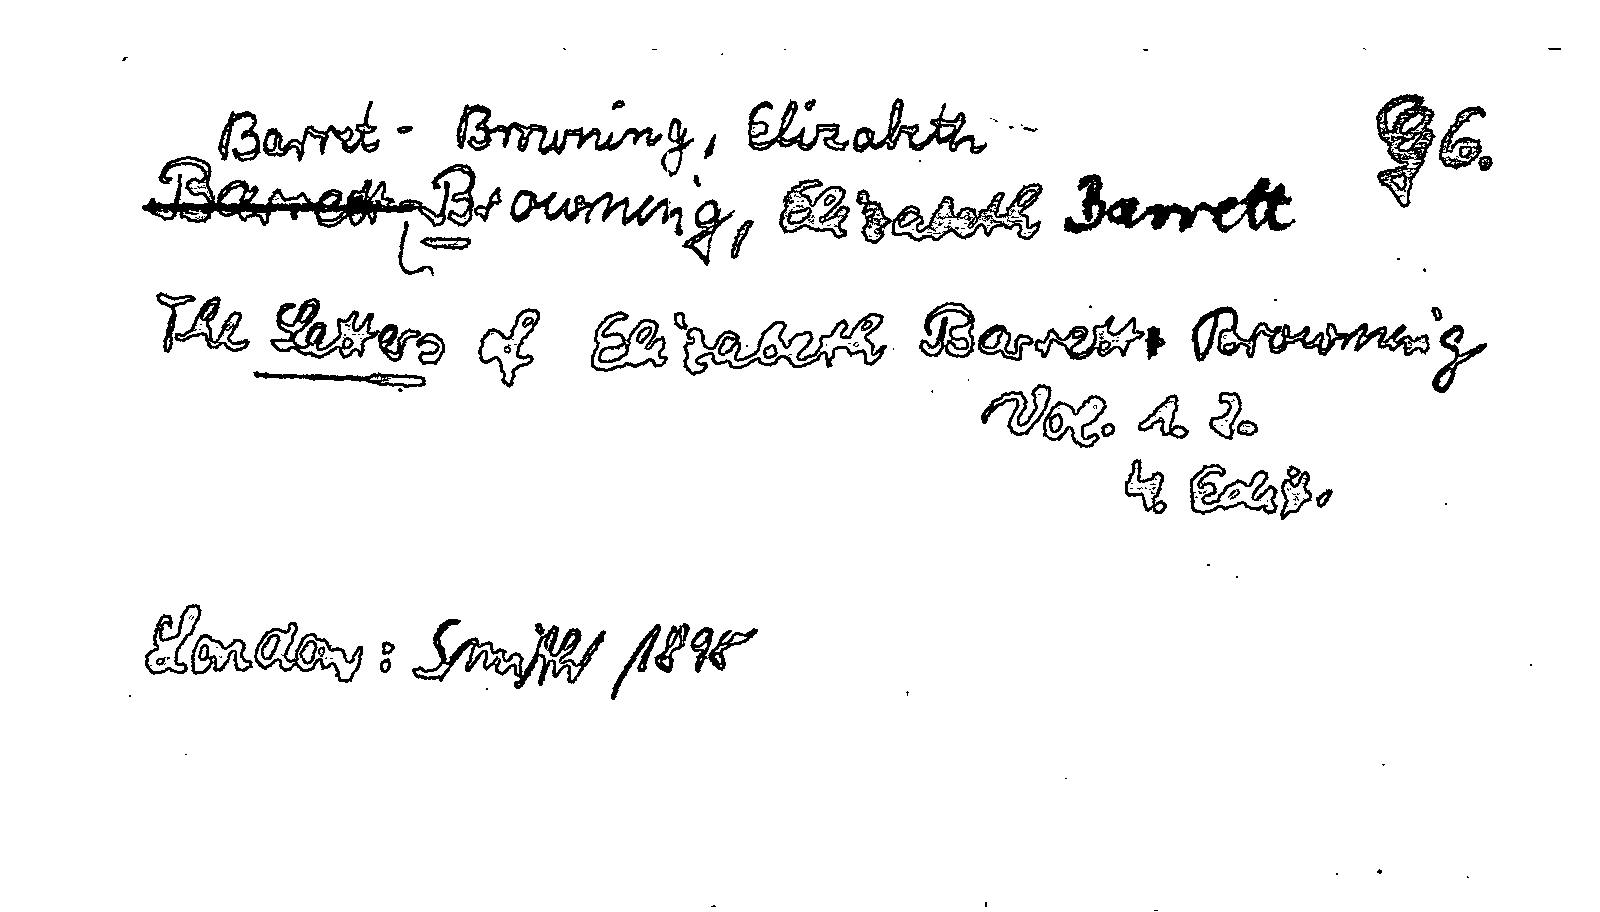 Barret - Browning, Elizabeth
96.
Barrett-Browning, Elizabeth Barrett
The Letters of Elizabeth Barrett Browning
Vol. 1. 2.
4. Edit.
London: Smith 1898